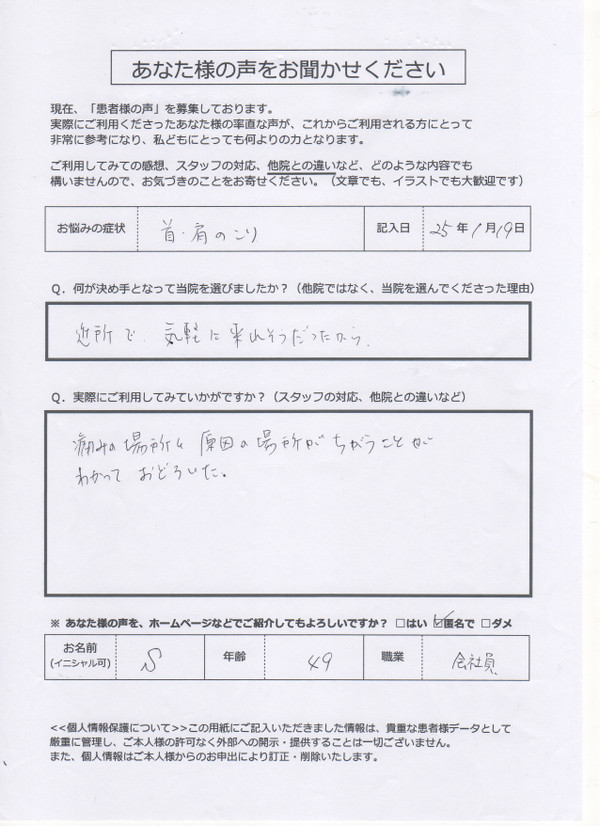 あなた様の声をお聞かせください
現在、「患者様の声」を募集しております。
実際にご利用くださったあなた様の率直な声が、これからご利用される方にとって
非常に参考になり、私どもにとっても何よりの力となります。
ご利用してみての感想、スタッフの対応、他院との違いなど、どのような内容でも
構いませんので、お気づきのことをお寄せください。（文章でも、イラストでも大歓迎です）
お悩みの症状 首・肩のこり 記入日 25年1月19日
Q．何が決め手となって当院を選びましたか？（他院ではなく、当院を選んでくださった理由）
近所で、気軽に来れそうだったから。
Q．実際にご利用してみていかがですか？（スタッフの対応、他院との違いなど）
痛みの場所と原因の場所がちがうことが
わかって おどろいた。
※ あなた様の声を、ホームページなどでご紹介してもよろしいですか？ □はい ☑匿名で □ダメ
お名前 (イニシャル可) S 年齢 49 職業 会社員
<<個人情報保護について>>この用紙にご記入いただきました情報は、貴重な患者様データとして
厳重に管理し、ご本人様の許可なく外部への開示・提供することは一切ございません。
また、個人情報はご本人様からのお申出により訂正・削除いたします。